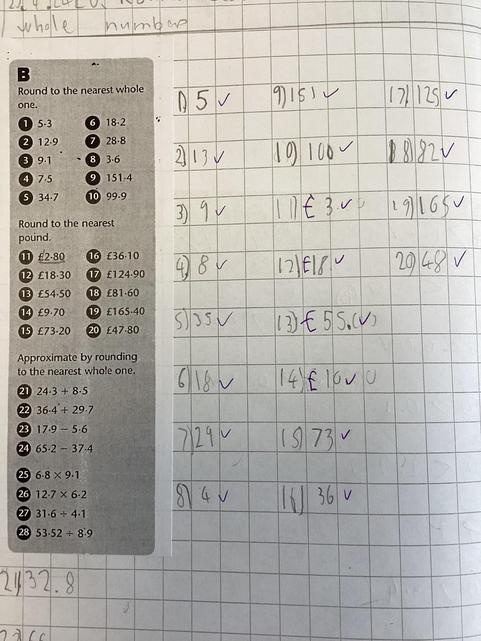 whole numbers
B
Round to the nearest whole
one.
1 5·3 6 18·2
2 12·9 7 28·8
3 9·1 8 3·6
4 7·5 9 151·4
5 34·7 10 99·9
Round to the nearest
pound.
11 £2·80 16 £36·10
12 £18·30 17 £124·90
13 £54·50 18 £81·60
14 £9·70 19 £165·40
15 £73·20 20 £47·80
Approximate by rounding
to the nearest whole one.
21 24·3 + 8·5
22 36·4 + 29·7
23 17·9 − 5·6
24 65·2 − 37·4
25 6·8 × 9·1
26 12·7 × 6·2
27 31·6 ÷ 4·1
28 53·52 ÷ 8·9
1) 5 ✓ 9) 151 ✓ 17) 125 ✓
2) 13 ✓ 10) 100 ✓ 18) 82 ✓
3) 9 ✓ 11) £3. ✓ 19) 165 ✓
4) 8 ✓ 12) £18 ✓ 20) 48 ✓
5) 35 ✓ 13) £55. (✓)
6) 18 ✓ 14) £10 ✓
7) 29 ✓ 15) 73 ✓
8) 4 ✓ 16) 36 ✓
21) 32.8